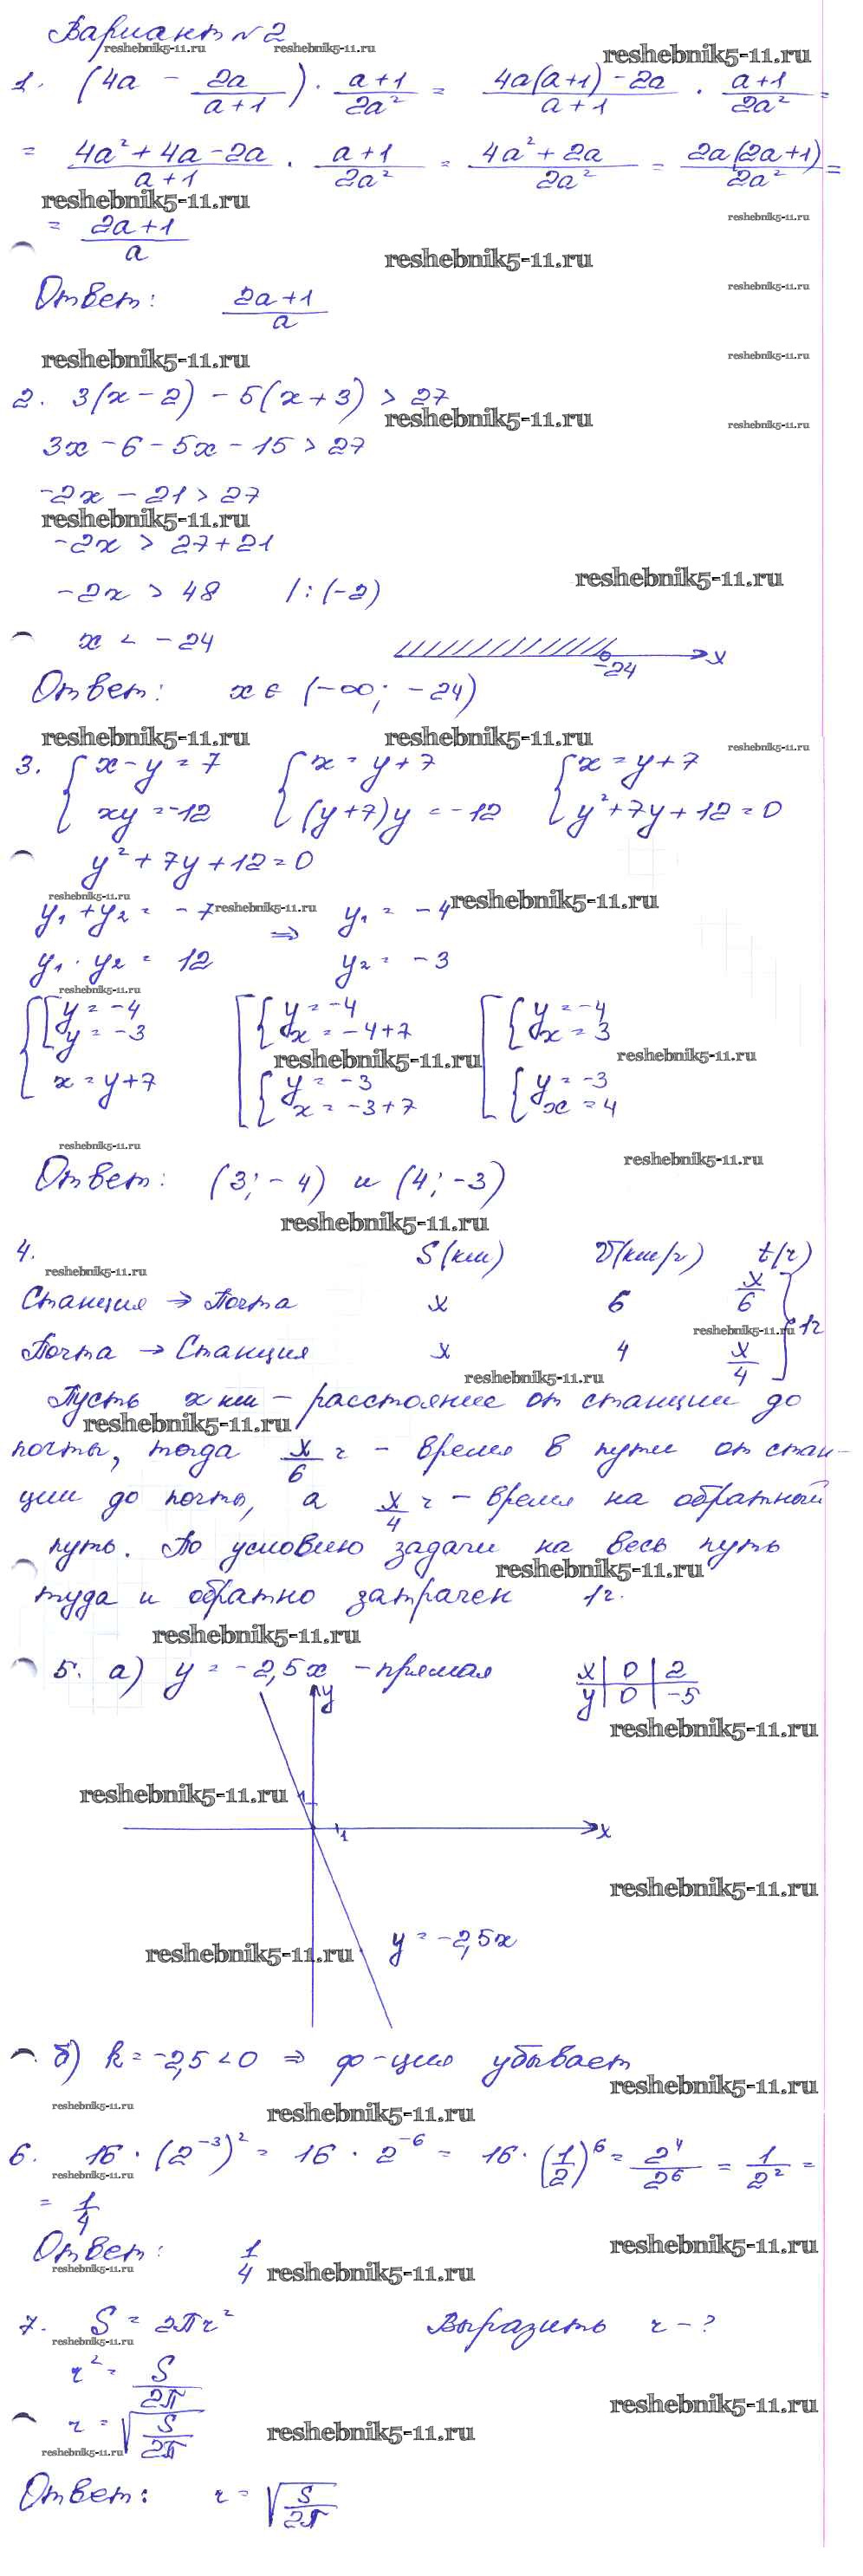 Вариант №2
reshebnik5-11.ru reshebnik5-11.ru reshebnik5-11.ru
1. (4a - 2a/(a+1)) · (a+1)/(2a²) = (4a(a+1) - 2a)/(a+1) · (a+1)/(2a²) =
= (4a² + 4a - 2a)/(a+1) · (a+1)/(2a²) = (4a² + 2a)/(2a²) = 2a(2a+1)/(2a²) =
reshebnik5-11.ru reshebnik5-11.ru
= (2a+1)/a
reshebnik5-11.ru
Ответ: (2a+1)/a
reshebnik5-11.ru
reshebnik5-11.ru reshebnik5-11.ru
2. 3(x-2) - 5(x+3) > 27
reshebnik5-11.ru reshebnik5-11.ru
3x - 6 - 5x - 15 > 27
-2x - 21 > 27
reshebnik5-11.ru
-2x > 27+21
reshebnik5-11.ru
-2x > 48 /:(-2)
x < -24
-24 x
Ответ: x ∈ (-∞; -24)
reshebnik5-11.ru reshebnik5-11.ru reshebnik5-11.ru
3. { x-y=7 { x=y+7 { x=y+7
xy=-12 (y+7)y=-12 y²+7y+12=0
y²+7y+12=0
reshebnik5-11.ru reshebnik5-11.ru reshebnik5-11.ru
y₁+y₂=-7 ⇒ y₁=-4
y₁·y₂=12 y₂=-3
reshebnik5-11.ru
{ [ y=-4 [ { y=-4 [ { y=-4
y=-3 x=-4+7 x=3
reshebnik5-11.ru reshebnik5-11.ru
x=y+7 { y=-3 { y=-3
x=-3+7 x=4
reshebnik5-11.ru reshebnik5-11.ru
Ответ: (3;-4) и (4;-3)
reshebnik5-11.ru
4. S(км) V(км/ч) t(ч)
reshebnik5-11.ru
Станция → Почта x 6 x/6
reshebnik5-11.ru 1ч
Почта → Станция x 4 x/4
reshebnik5-11.ru
Пусть x км - расстояние от станции до
reshebnik5-11.ru
почты, тогда x/6 ч - время в пути от стан-
ции до почты, а x/4 ч - время на обратный
путь. По условию задачи на весь путь
reshebnik5-11.ru
туда и обратно затрачен 1ч.
reshebnik5-11.ru
5. а) y=-2,5x - прямая x | 0 | 2
y | 0 | -5
y
reshebnik5-11.ru
reshebnik5-11.ru 1
1 x
reshebnik5-11.ru
reshebnik5-11.ru y=-2,5x
б) k=-2,5<0 ⇒ ф-ция убывает
reshebnik5-11.ru
reshebnik5-11.ru reshebnik5-11.ru
6. 16·(2⁻³)² = 16·2⁻⁶ = 16·(1/2)⁶ = 2⁴/2⁶ = 1/2² =
reshebnik5-11.ru
= 1/4
reshebnik5-11.ru
Ответ: 1/4
reshebnik5-11.ru reshebnik5-11.ru
7. S=2πr² Выразить r-?
reshebnik5-11.ru
r²=S/2π
reshebnik5-11.ru
r=√(S/2π)
reshebnik5-11.ru
reshebnik5-11.ru
Ответ: r=√(S/2π)